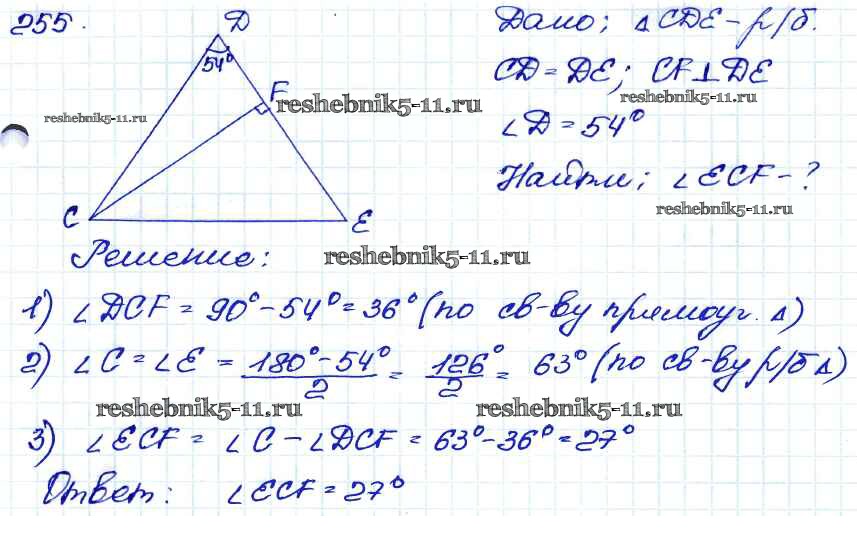 255.
Дано; △CDE - р/б.
CD = DE; CF ⊥ DE
∠D = 54°
Найти; ∠ECF - ?
D
54°
F
C
E
reshebnik5-11.ru
reshebnik5-11.ru
reshebnik5-11.ru
reshebnik5-11.ru
Решение:
reshebnik5-11.ru
1) ∠DCF = 90° - 54° = 36° (по св-ву прямоуг. △)
2) ∠C = ∠E = (180° - 54°)/2 = 126°/2 = 63° (по св-ву р/б △)
reshebnik5-11.ru
reshebnik5-11.ru
3) ∠ECF = ∠C - ∠DCF = 63° - 36° = 27°
Ответ: ∠ECF = 27°